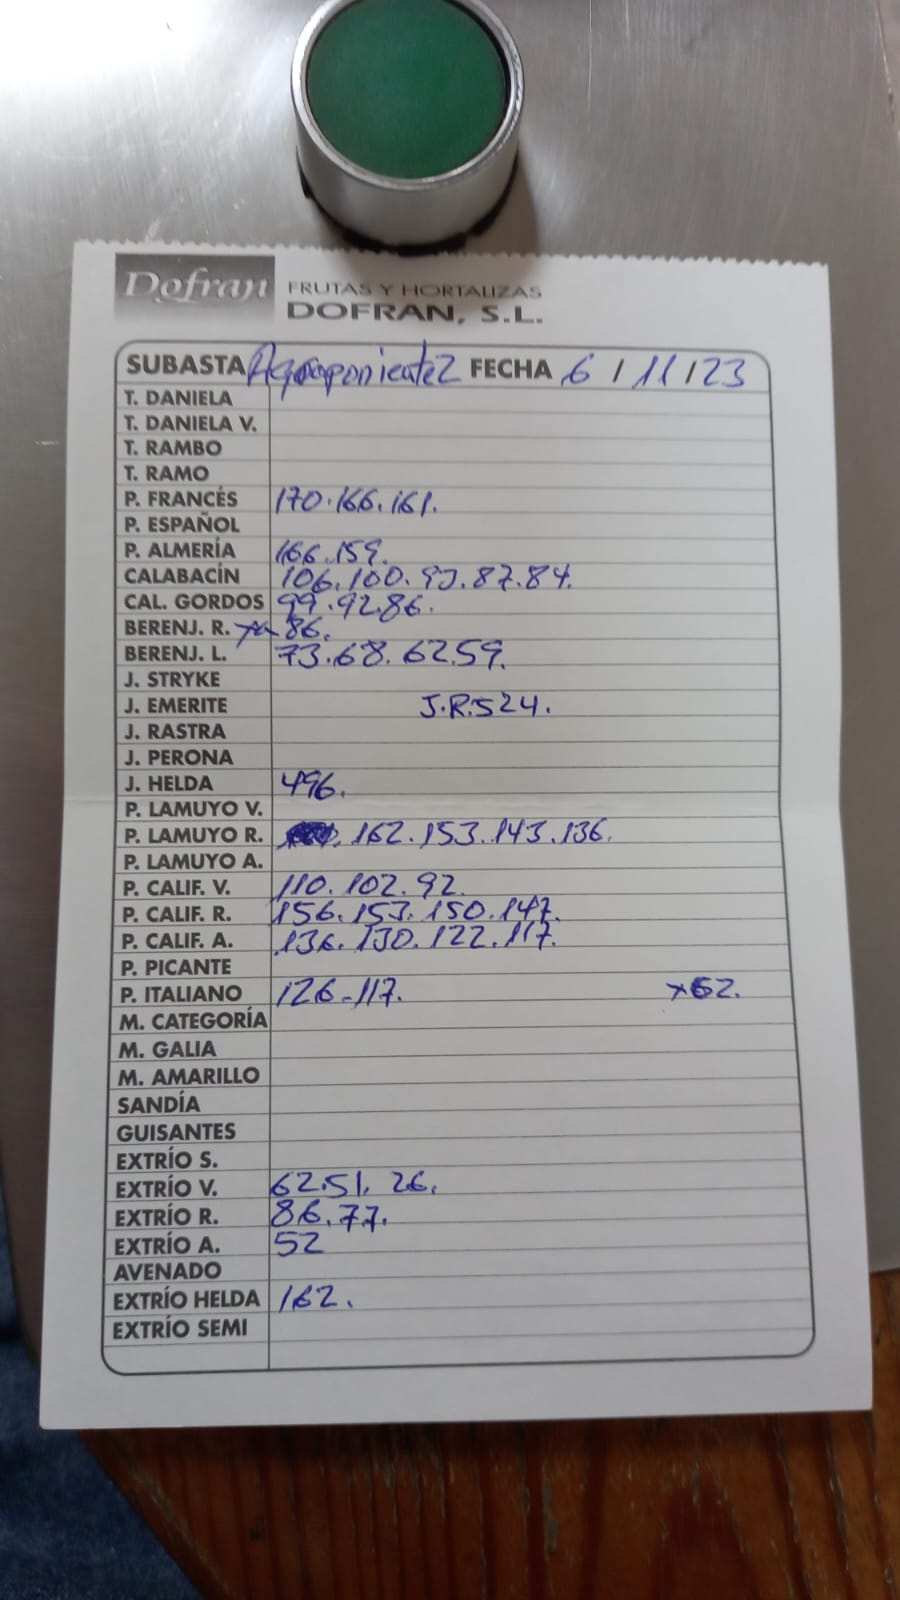 Dofran FRUTAS Y HORTALIZAS
DOFRAN, S.L.
SUBASTA Agroponiente2 FECHA 6 / 11 / 23
T. DANIELA
T. DANIELA V.
T. RAMBO
T. RAMO
P. FRANCÉS 170.166.161.
P. ESPAÑOL
P. ALMERÍA 166.159.
CALABACÍN 106.100.93.87.84.
CAL. GORDOS 99.92.86.
BERENJ. R. 86.
BERENJ. L. 73.68.62.59.
J. STRYKE
J. EMERITE J.R.524.
J. RASTRA
J. PERONA
J. HELDA 496.
P. LAMUYO V.
P. LAMUYO R. .162.153.143.136.
P. LAMUYO A.
P. CALIF. V. 110.102.92.
P. CALIF. R. 156.153.150.147.
P. CALIF. A. 136.130.122.117.
P. PICANTE
P. ITALIANO 126-117. x62.
M. CATEGORÍA
M. GALIA
M. AMARILLO
SANDÍA
GUISANTES
EXTRÍO S.
EXTRÍO V. 62.51. 26.
EXTRÍO R. 86.77.
EXTRÍO A. 52
AVENADO
EXTRÍO HELDA 162.
EXTRÍO SEMI